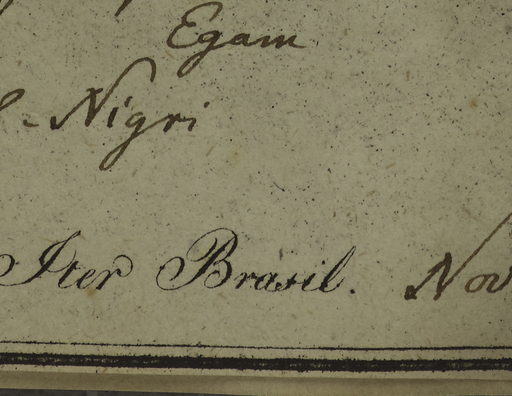 Egam
- Nigri
Iter Brasil. Nov